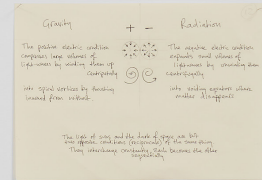 Gravity
+ −
Radiation
The positive electric condition
compresses large volumes of
light-waves by winding them up
centripetally
into spiral vortices by thrusting
inward from without
The negative electric condition
expands small volumes of
light-waves by unwinding them
centrifugally
into voiding equators where
matter disappears
The light of suns and the dark of space are but
two opposite conditions (reciprocals) of the same thing.
They interchange constantly. Each becomes the other
sequentially.